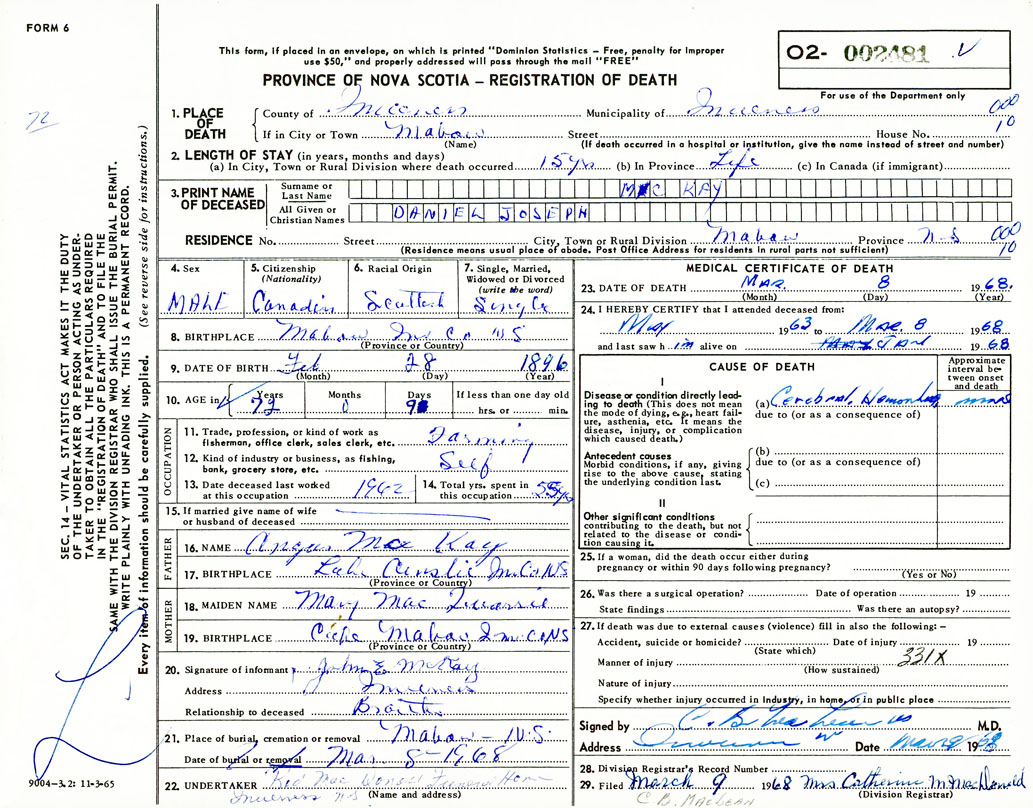 FORM 6
This form, if placed in an envelope, on which is printed "Dominion Statistics – Free, penalty for improper
use $50," and properly addressed will pass through the mail "FREE"
PROVINCE OF NOVA SCOTIA – REGISTRATION OF DEATH
O2- 002481
For use of the Department only
72
1. PLACE OF DEATH
County of Inverness Municipality of Inverness 000
If in City or Town Mabou Street House No. 10
(Name) (If death occurred in a hospital or institution, give the name instead of street and number)
2. LENGTH OF STAY (in years, months and days)
(a) In City, Town or Rural Division where death occurred 15 yrs (b) In Province Life (c) In Canada (if immigrant)
3. PRINT NAME OF DECEASED
Surname or Last Name MacKAY
All Given or Christian Names DANIEL JOSEPH
RESIDENCE No. Street City, Town or Rural Division Mabou Province N-S 000
(Residence means usual place of abode. Post Office Address for residents in rural parts not sufficient) 10
4. Sex MALE
5. Citizenship (Nationality) Canadin
6. Racial Origin Scottish
7. Single, Married, Widowed or Divorced (write the word) Single
8. BIRTHPLACE Mabou Inv. Co N S
(Province or Country)
9. DATE OF BIRTH Feb 28 1896
(Month) (Day) (Year)
10. AGE in Years 72 Months 0 Days 9 If less than one day old
hrs. or min.
OCCUPATION
11. Trade, profession, or kind of work as
fisherman, office clerk, sales clerk, etc. Farming
12. Kind of industry or business, as fishing,
bank, grocery store, etc. Self
13. Date deceased last worked
at this occupation 1962
14. Total yrs. spent in
this occupation 55 yrs
15. If married give name of wife
or husband of deceased
FATHER
16. NAME Angus Mac Kay
17. BIRTHPLACE Lake Ainslie In Co NS
(Province or Country)
MOTHER
18. MAIDEN NAME Mary Mac
19. BIRTHPLACE Mabou In Co NS
(Province or Country)
20. Signature of informant John E McKay
Address Inverness
Relationship to deceased Brother
21. Place of burial, cremation or removal Mabou - N.S.
Date of burial or removal Mar 8 - 1968
22. UNDERTAKER Mac Funeral Home
Inverness N S (Name and address)
MEDICAL CERTIFICATE OF DEATH
23. DATE OF DEATH MAR. 8 1968.
(Month) (Day) (Year)
24. I HEREBY CERTIFY that I attended deceased from:
May 1963 to MAR. 8 1968
and last saw h im alive on JAN 1968
CAUSE OF DEATH
Approximate interval between onset and death
I
Disease or condition directly leading to death (This does not mean the mode of dying, e.g., heart failure, asthenia, etc. It means the disease, injury, or complication which caused death.)
(a) Cerebral Hemorrhage mins
due to (or as a consequence of)
Antecedent causes
Morbid conditions, if any, giving rise to the above cause, stating the underlying condition last.
(b)
due to (or as a consequence of)
(c)
II
Other significant conditions
contributing to the death, but not related to the disease or condition causing it.
25. If a woman, did the death occur either during
pregnancy or within 90 days following pregnancy?
(Yes or No)
26. Was there a surgical operation? Date of operation 19
State findings Was there an autopsy?
27. If death was due to external causes (violence) fill in also the following: –
Accident, suicide or homicide? Date of injury 19
(State which)
Manner of injury 331X
(How sustained)
Nature of injury
Specify whether injury occurred in Industry, in home, or in public place
Signed by M.D.
Address Inverness Date Mar 9 1968
28. Division Registrar's Record Number
29. Filed March 9 1968 Mrs. Catherine M. MacDonald
(Division Registrar)
C. B. MacLEAN
SEC. 14 – VITAL STATISTICS ACT MAKES IT THE DUTY
OF THE UNDERTAKER OR PERSON ACTING AS UNDER-
TAKER TO OBTAIN ALL THE PARTICULARS REQUIRED
IN THE "REGISTRATION OF DEATH" AND TO FILE THE
SAME WITH THE DIVISION REGISTRAR WHO SHALL ISSUE THE BURIAL PERMIT.
WRITE PLAINLY WITH UNFADING INK. THIS IS A PERMANENT RECORD.
Every item of information should be carefully supplied. (See reverse side for instructions.)
9004-3.2: 11-3-65